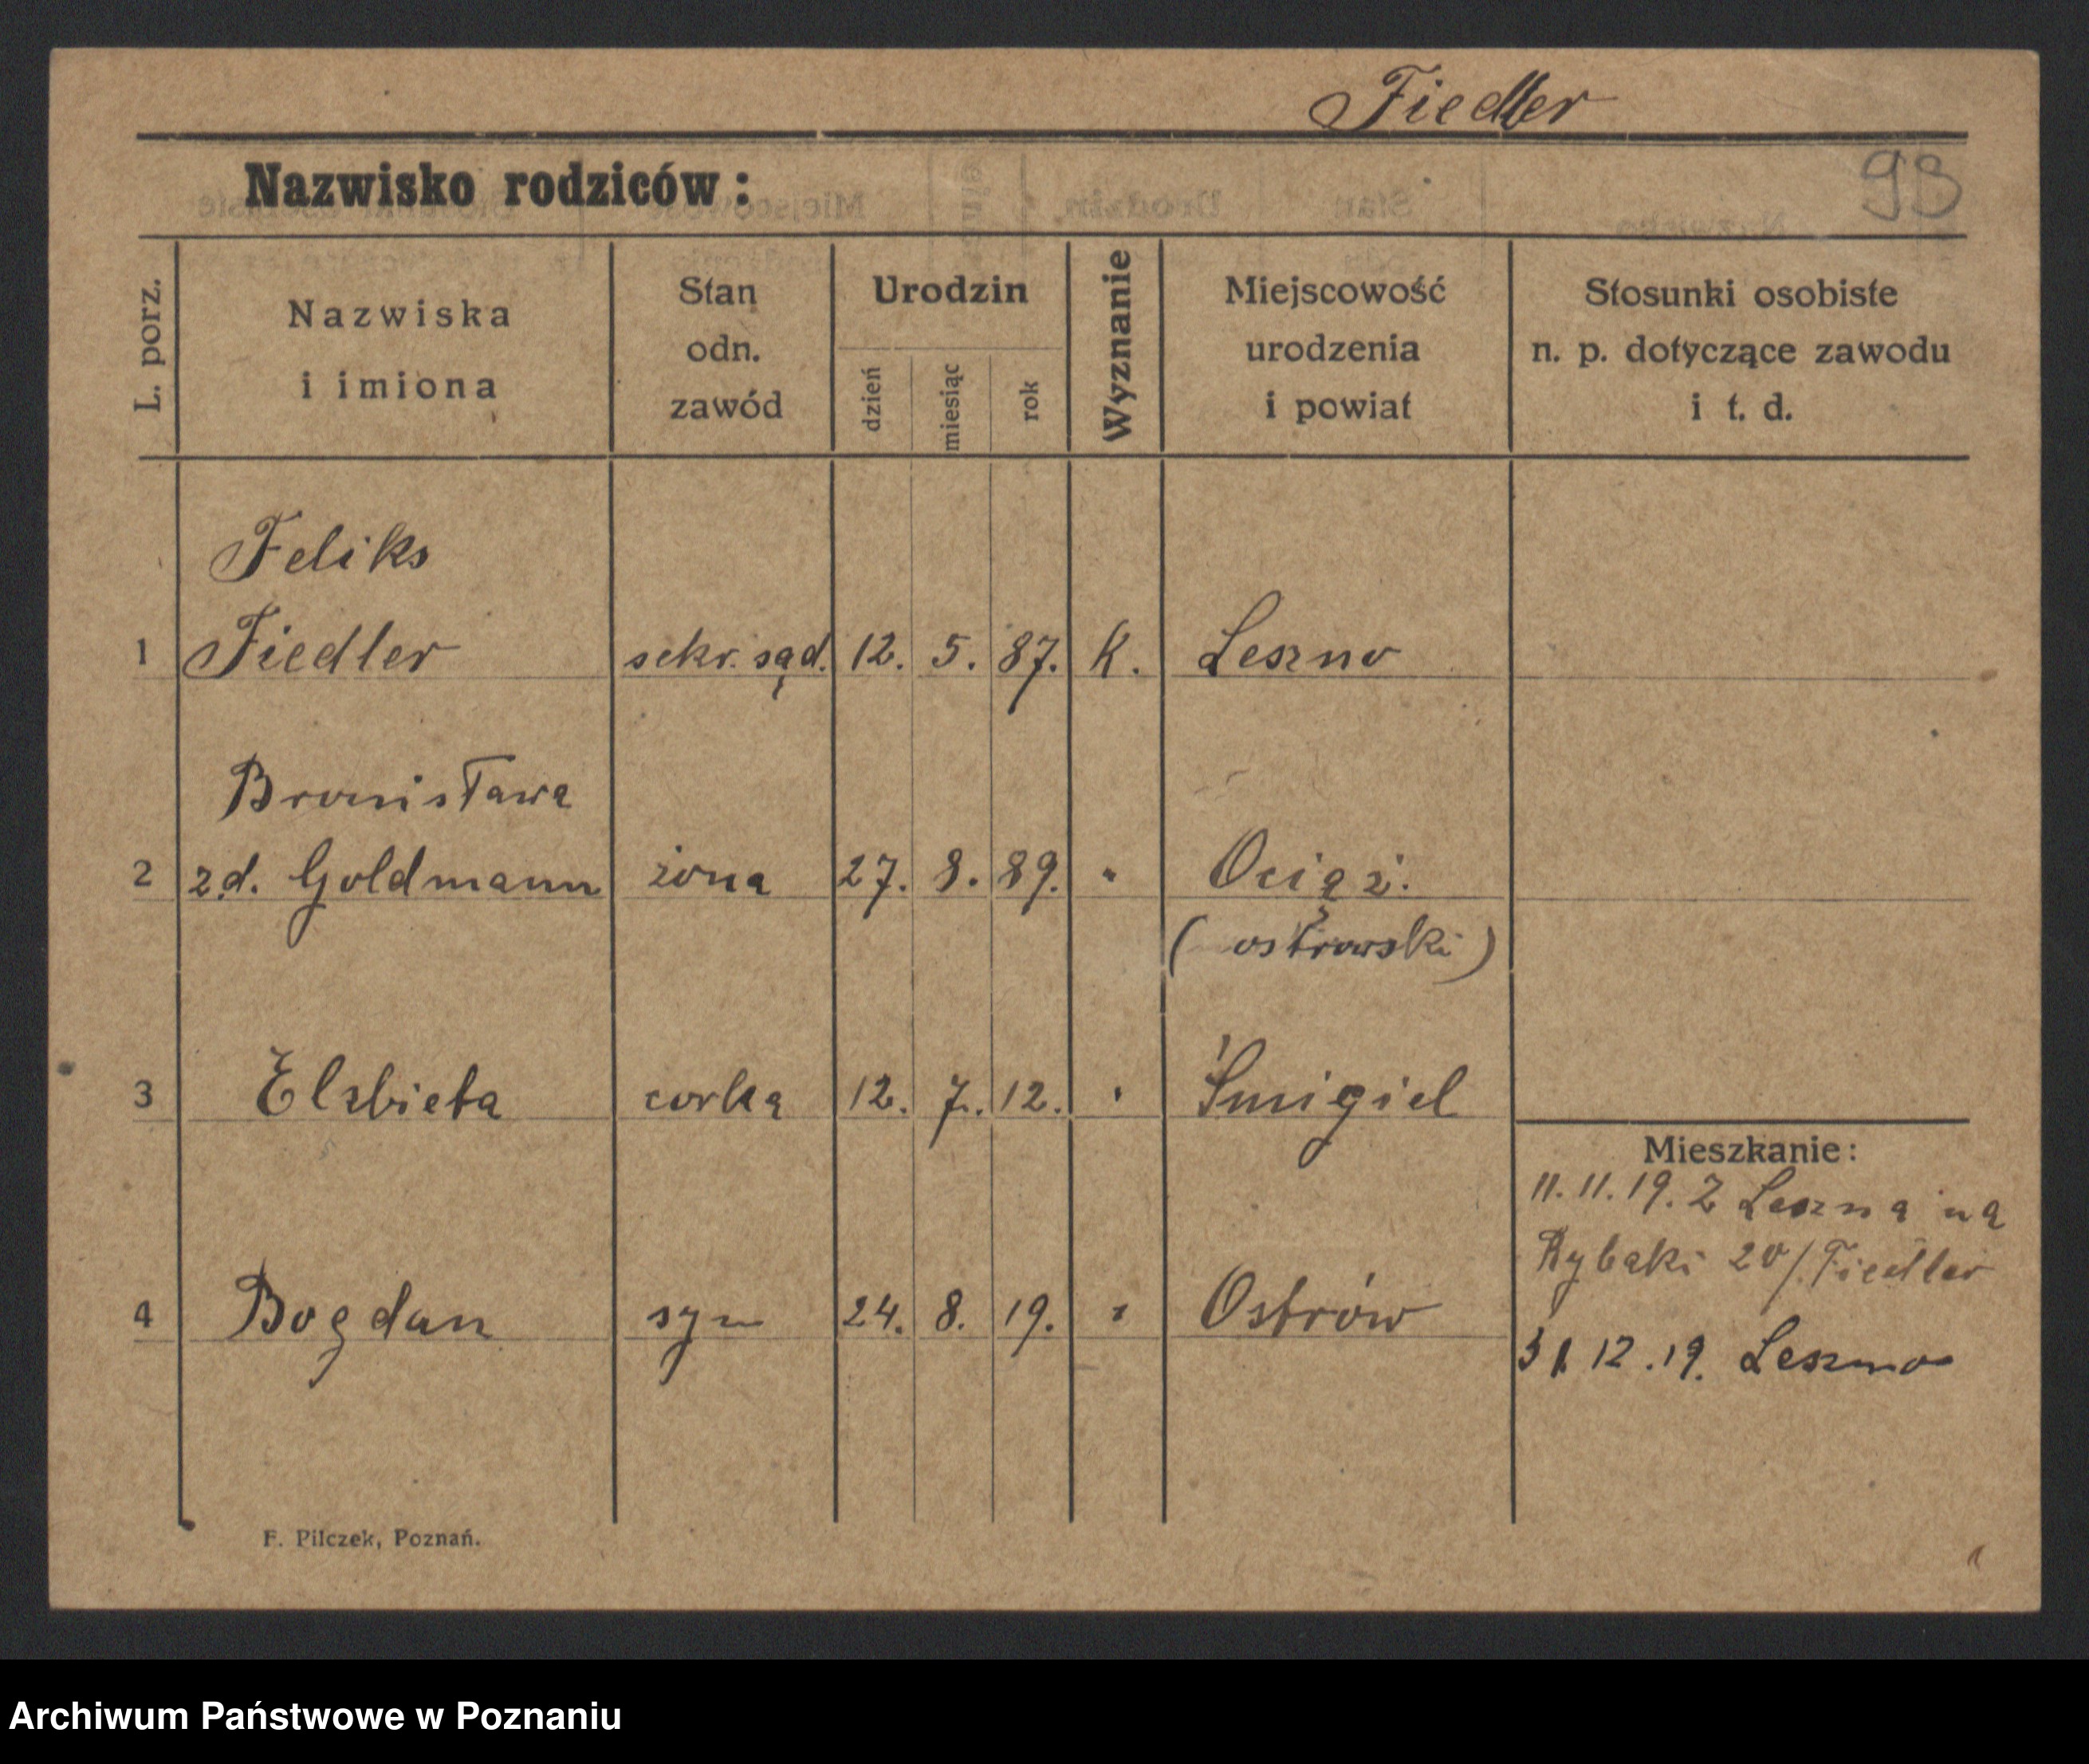 Fiedler
Nazwisko rodziców:
93
L. porz.
Nazwiska
i imiona
Stan
odn.
zawód
Urodzin
dzień
miesiąc
rok
Wyznanie
Miejscowość
urodzenia
i powiat
Stosunki osobiste
n. p. dotyczące zawodu
i t. d.
Feliks
1 Fiedler sekr. sąd. 12. 5. 87. K. Leszno
Bronisława
2 z d. Goldmann żona 27. 8. 89. " Ociąż.
(ostrowski)
3 Elzbieta corka 12. 7. 12. " Śmigiel
Mieszkanie:
11. 11. 19. Z Leszna na
Rybaki 20/. Fiedler
4 Bogdan syn 24. 8. 19. " Ostrów
31 12. 19. Leszno
F. Pilczek, Poznań.
Archiwum Państwowe w Poznaniu